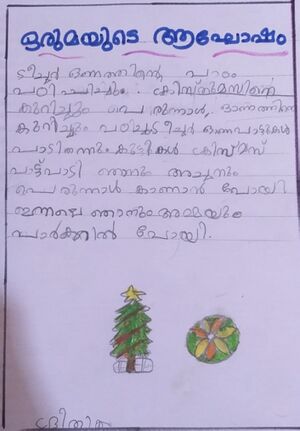 ഒരുമയുടെ ആഘോഷം
ടീച്ചർ ഓണത്തിന്റെ പാഠം
പഠിപ്പിച്ചു. ക്രിസ്മസിന്റെ
കുറിച്ചും പെരുന്നാൾ, ഓണത്തിനെ
കുറിച്ചും പഠിച്ചു ടീച്ചർ ഓണപാട്ടുകൾ
പാടിതന്നു കുട്ടികൾ ക്രിസ്മസ്
പാട്ട്പാടി ഞാനും അച്ചനും
പെരുന്നാൾ കാണാൻ പോയി
ഇന്നലെ ഞാനും അമ്മയും
പാർക്കിൽ പോയി.